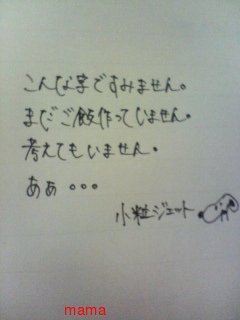 こんな字ですみません。
まだご飯作っていません。
考えてもいません。
あぁ。。。
小粒ジェット
mama